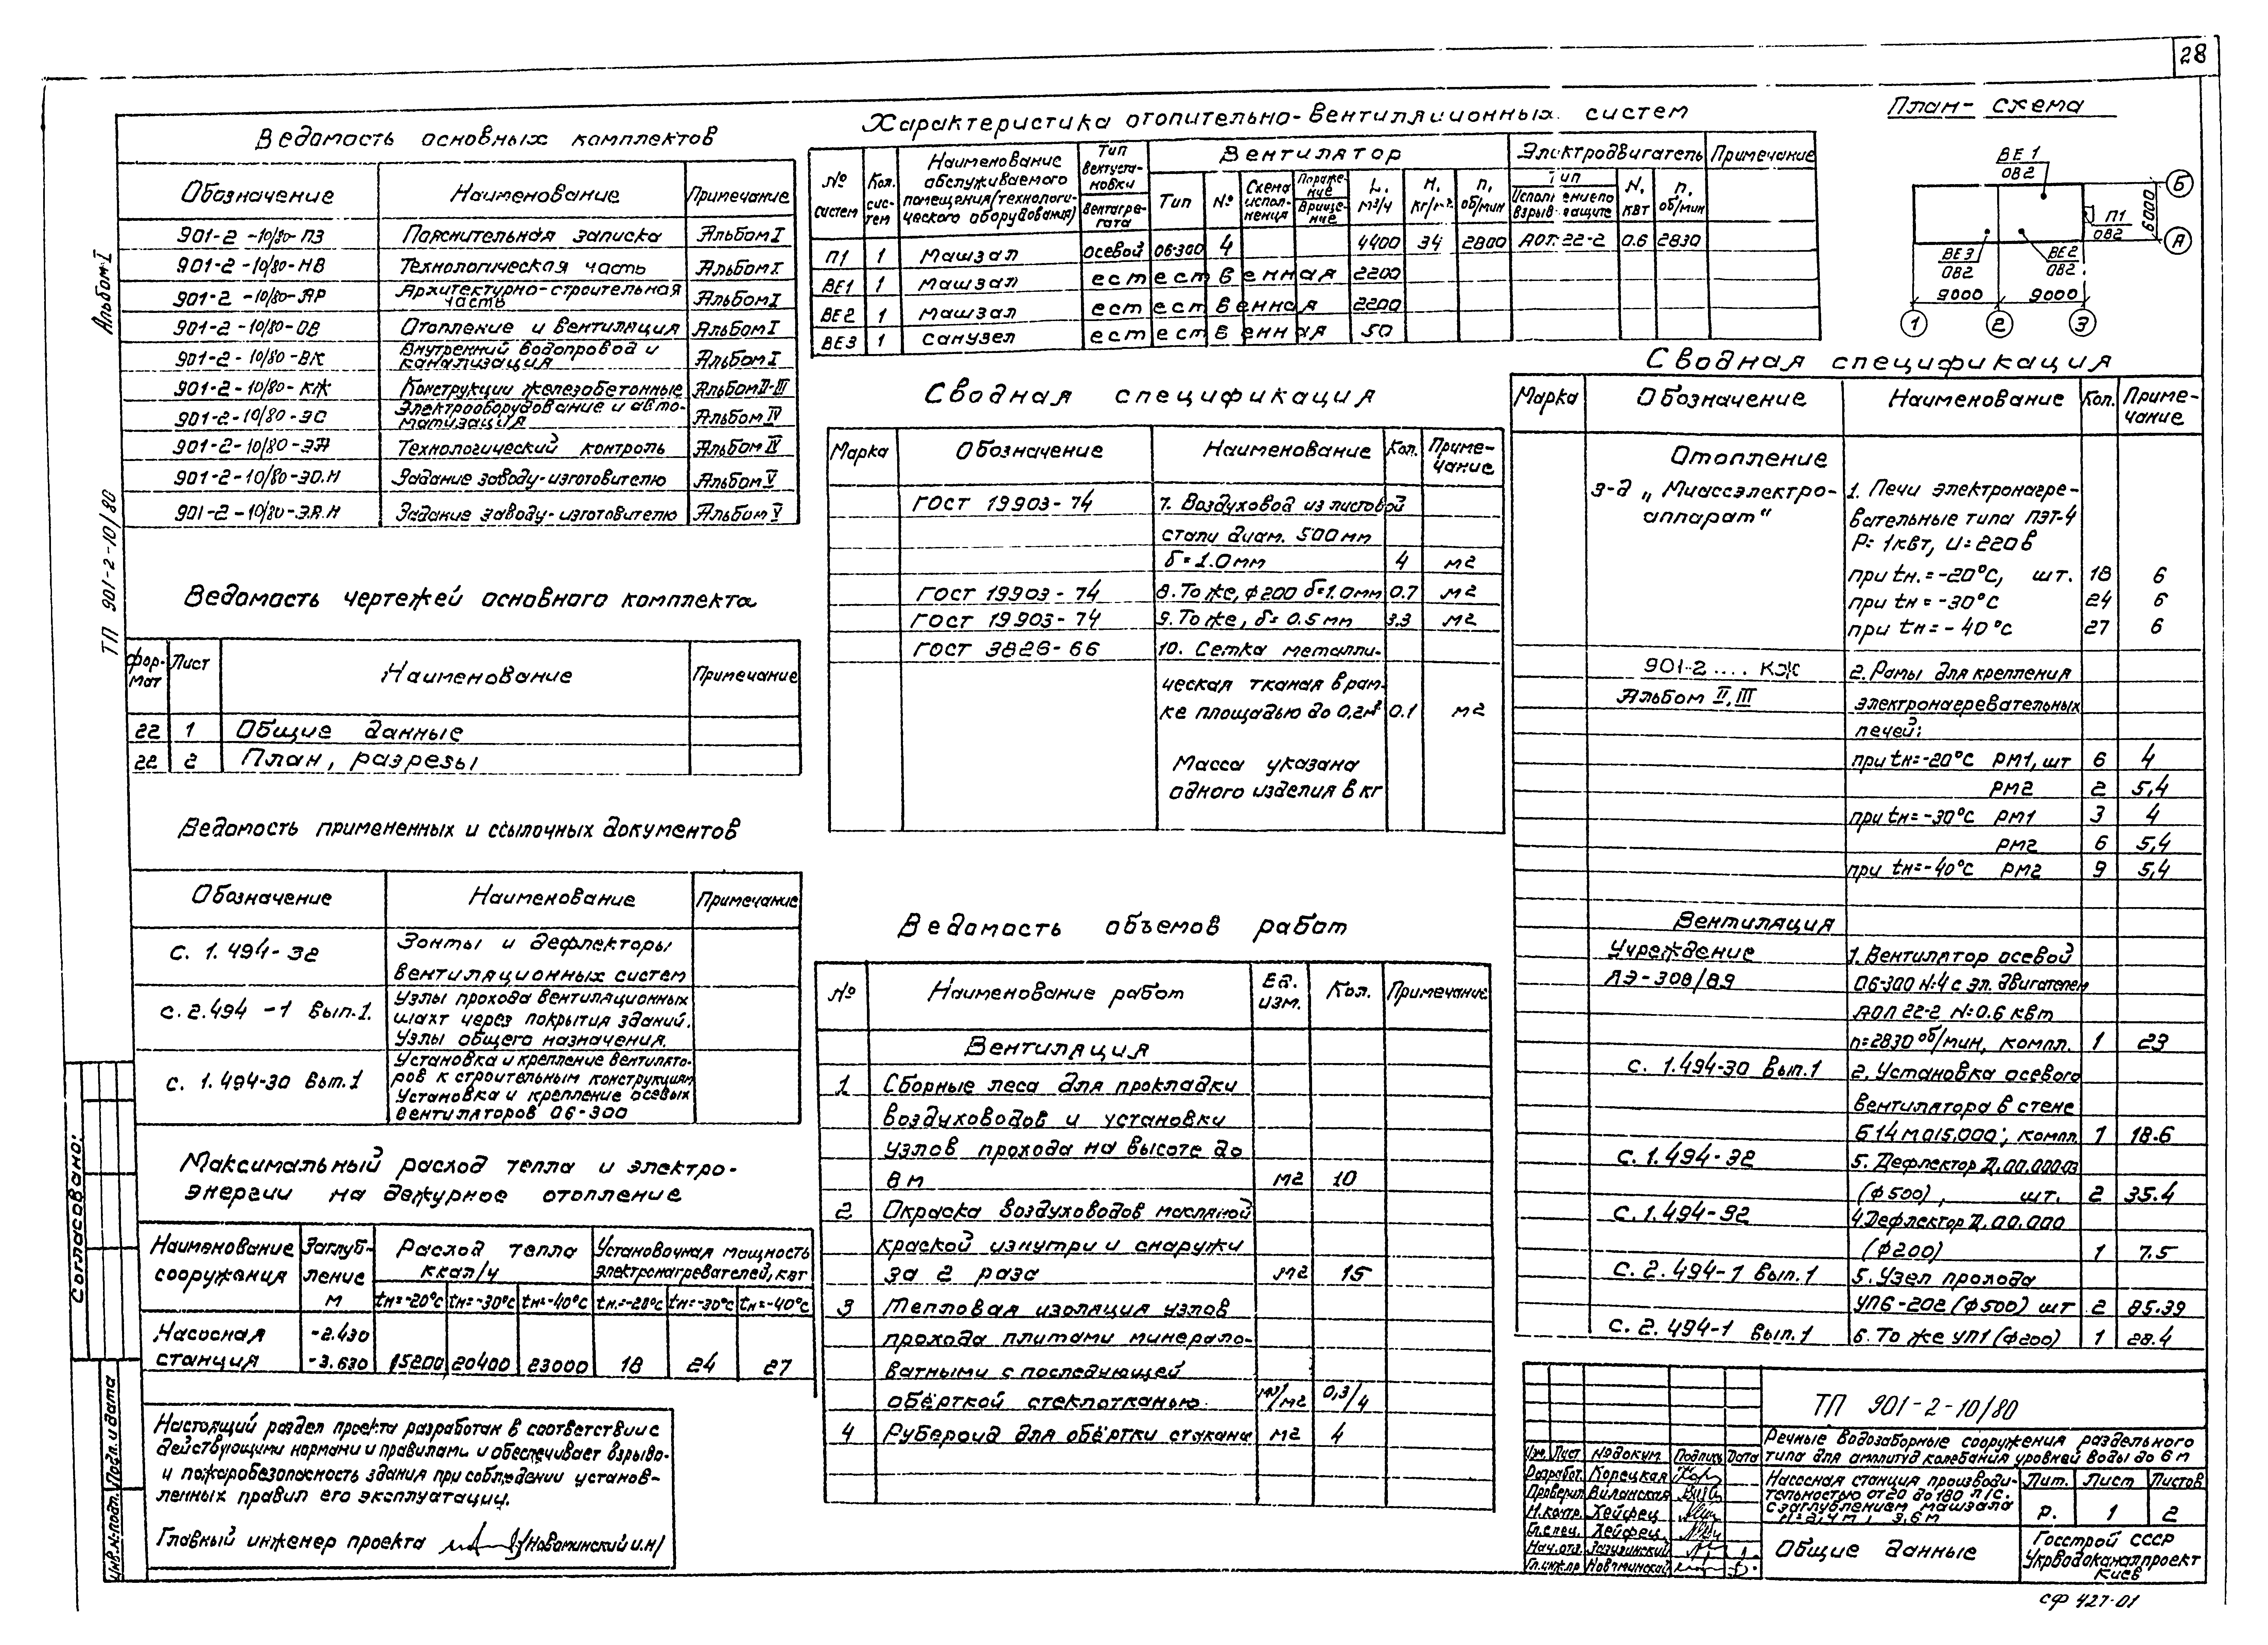 28
Альбом I
ТП 901-2-10/80
Ведомость основных комплектов
Обозначение Наименование Примечание
901-2-10/80-ПЗ Пояснительная записка Альбом I
901-2-10/80-НВ Технологическая часть Альбом I
901-2-10/80-АР Архитектурно-строительная часть Альбом I
901-2-10/80-ОВ Отопление и вентиляция Альбом I
901-2-10/80-ВК Внутренний водопровод и канализация Альбом I
901-2-10/80-КЖ Конструкции железобетонные Альбом II-III
901-2-10/80-ЭС Электрооборудование и автоматизация Альбом IV
901-2-10/80-ЭА Технологический контроль Альбом IV
901-2-10/80-ЭО.Н Задание заводу-изготовителю Альбом V
901-2-10/80-ЭА.Н Задание заводу-изготовителю Альбом V
Ведомость чертежей основного комплекта
Фор-мат Лист Наименование Примечание
22 1 Общие данные
22 2 План, разрезы
Ведомость примененных и ссылочных документов
Обозначение Наименование Примечание
с. 1.494-32 Зонты и дефлекторы
вентиляционных систем
с. 2.494-1 Вып.1. Узлы прохода вентиляционных
шахт через покрытия зданий.
Узлы общего назначения.
с. 1.494-30 Вып.1 Установка и крепление вентилято-
ров к строительным конструкциям
Установка и крепление осевых
вентиляторов 06-300
Максимальный расход тепла и электро-
энергии на дежурное отопление
Наименование сооружения Заглуб-ление м Расход тепла ккал/ч Установочная мощность электронагревателей, квт
tн=-20°с tн=-30°с tн=-40°с tн.=-20°с tн=-30°с tн=-40°с
Насосная -2.430
станция -3.630 15200 20400 23000 18 24 27
Настоящий раздел проекта разработан в соответствии с
действующими нормами и правилами и обеспечивает взрыво-
и пожаробезопасность здания при соблюдении установ-
ленных правил его эксплуатации.
Главный инженер проекта /Новоминский И.Н/
Согласовано:
Инв.№ подл. Подп. и дата
Характеристика отопительно-вентиляционных систем
№ систем Кол. сис-тем Наименование обслуживаемого помещения (технологи-ческого оборудования) Тип вентуста-новки вентагре-гата Вентилятор Электродвигатель Примечание
Тип № Схема испол-нения L, м3/ч Н, кг/м2 n, об/мин Тип N, квт n, об/мин
П1 1 Машзал осевой 06-300 4 4400 34 2800 АОЛ 22-2 0.6 2830
ВЕ1 1 Машзал естественная 2200
ВЕ2 1 Машзал естественная 2200
ВЕ3 1 санузел естественная 50
Сводная спецификация
Марка Обозначение Наименование Кол. Приме-чание
ГОСТ 19903-74 7. Воздуховод из листовой
стали диам. 500 мм
δ=1.0мм 4 м2
ГОСТ 19903-74 8. То же, ф200 δ=1.0мм 0.7 м2
ГОСТ 19903-74 9. То же, δ= 0.5 мм 3.3 м2
ГОСТ 3826-66 10. Сетка металли-
ческая тканая в рам-
ке площадью до 0,2м2 0.1 м2
Масса указана
одного изделия в кг
Ведомость объемов работ
№ Наименование работ Ед. изм. Кол. Примечание
Вентиляция
1 Сборные леса для прокладки
воздуховодов и установки
узлов прохода на высоте до
8 м м2 10
2 Окраска воздуховодов масляной
краской изнутри и снаружи
за 2 раза м2 15
3 Тепловая изоляция узлов
прохода плитами минерало-
ватными с последующей
обёрткой стеклотканью. м3/м2 0,3/4
4 Рубероид для обёртки стакана м2 4
План-схема
ВЕ1
ОВ2
П1
ОВ2
ВЕ3
ОВ2
ВЕ2
ОВ2
6000
9000 9000
Б
А
1 2 3
Сводная спецификация
Марка Обозначение Наименование Кол. Приме-чание
Отопление
з-д „Миассэлектро- 1. Печи электронагре-
аппарат" вательные типа ПЭТ-4
Р=1квт, U=220в
при tн.=-20°С, шт. 18 6
при tн=-30°С 24 6
при tн=-40°С 27 6
901-2 .... КЖ 2. Рамы для крепления
Альбом II, III электронагревательных
печей:
при tн=-20°С РМ1, шт 6 4
РМ2 2 5,4
при tн=-30°С РМ1 3 4
РМ2 6 5,4
при tн=-40°С РМ2 9 5,4
Вентиляция
Учреждение 1. Вентилятор осевой
ЯЭ-308/89 06-300 №4 с эл. двигателем
АОЛ 22-2 N=0.6 квт
n=2830 об/мин, компл. 1 23
с. 1.494-30 Вып.1 2. Установка осевого
вентилятора в стене
Б14М015.000; компл. 1 18.6
с. 1.494-32 5. Дефлектор Д.00.000.03
(ф500), шт. 2 35.4
с. 1.494-32 4 Дефлектор Д.00.000
(ф200) 1 7.5
с. 2.494-1 Вып.1 5. Узел прохода
УП6-202 (ф500) шт 2 85.39
с. 2.494-1 Вып.1 6. То же УП1 (ф200) 1 28.4
ТП 901-2-10/80
Речные водозаборные сооружения раздельного
типа для амплитуд колебания уровней воды до 6 м
Изм. Лист № докум. Подпись Дата
Разработ. Корецкая
Проверил Виланская
Н.контр. Хейфец
Гл.спец. Хейфец
Нач.отд.
Гл.инж.пр Новоминский
Насосная станция производи-
тельностью от 20 до 180 л/с.
с заглублением машзала
Н=2,4 м; 3,6 м
Лит. Лист Листов
Р. 1 2
Общие данные
Госстрой СССР
Укрводоканалпроект
Киев
сф 427-01